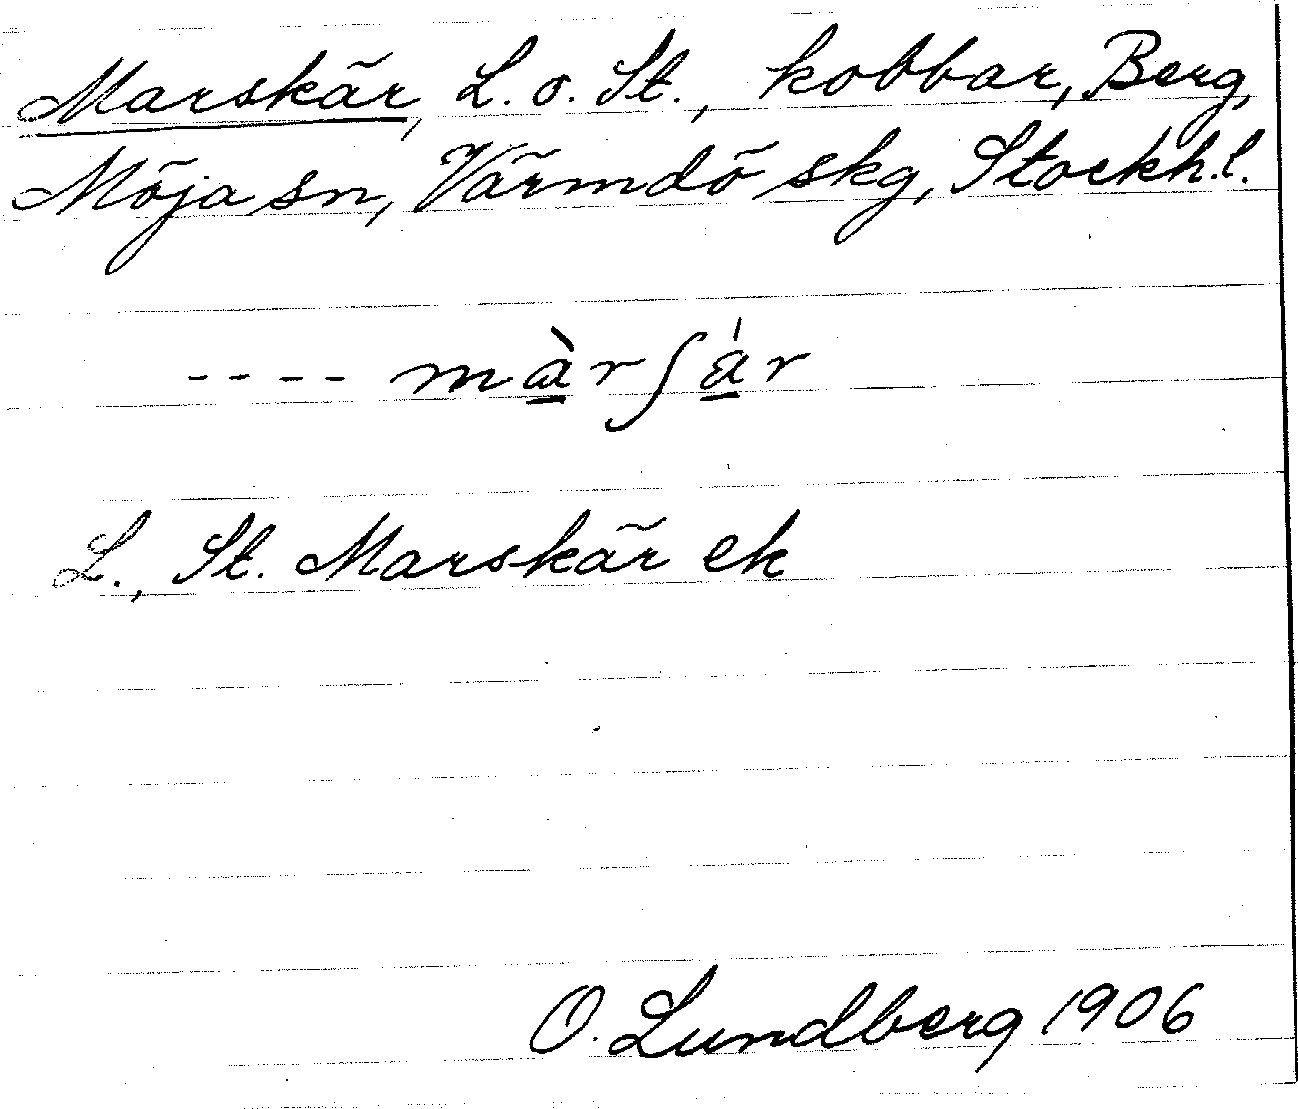 Marskär, L. o. St., kobbar, Berg,
Möja sn, Värmdö skg, Stockh.l.
---- màrʃár
L., St. Marskär ek
O. Lundberg 1906